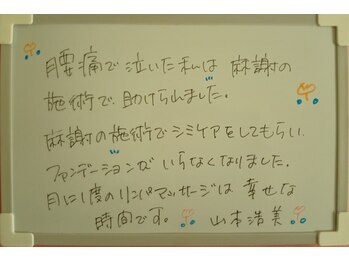 腰痛で泣いた私は 麻謝の
施術で助けられました。
麻謝の施術でシミケアをしてもらい
ファンデーションがいらなくなりました。
月に1度のリンパマッサージは 幸せな
時間です。 山本浩美